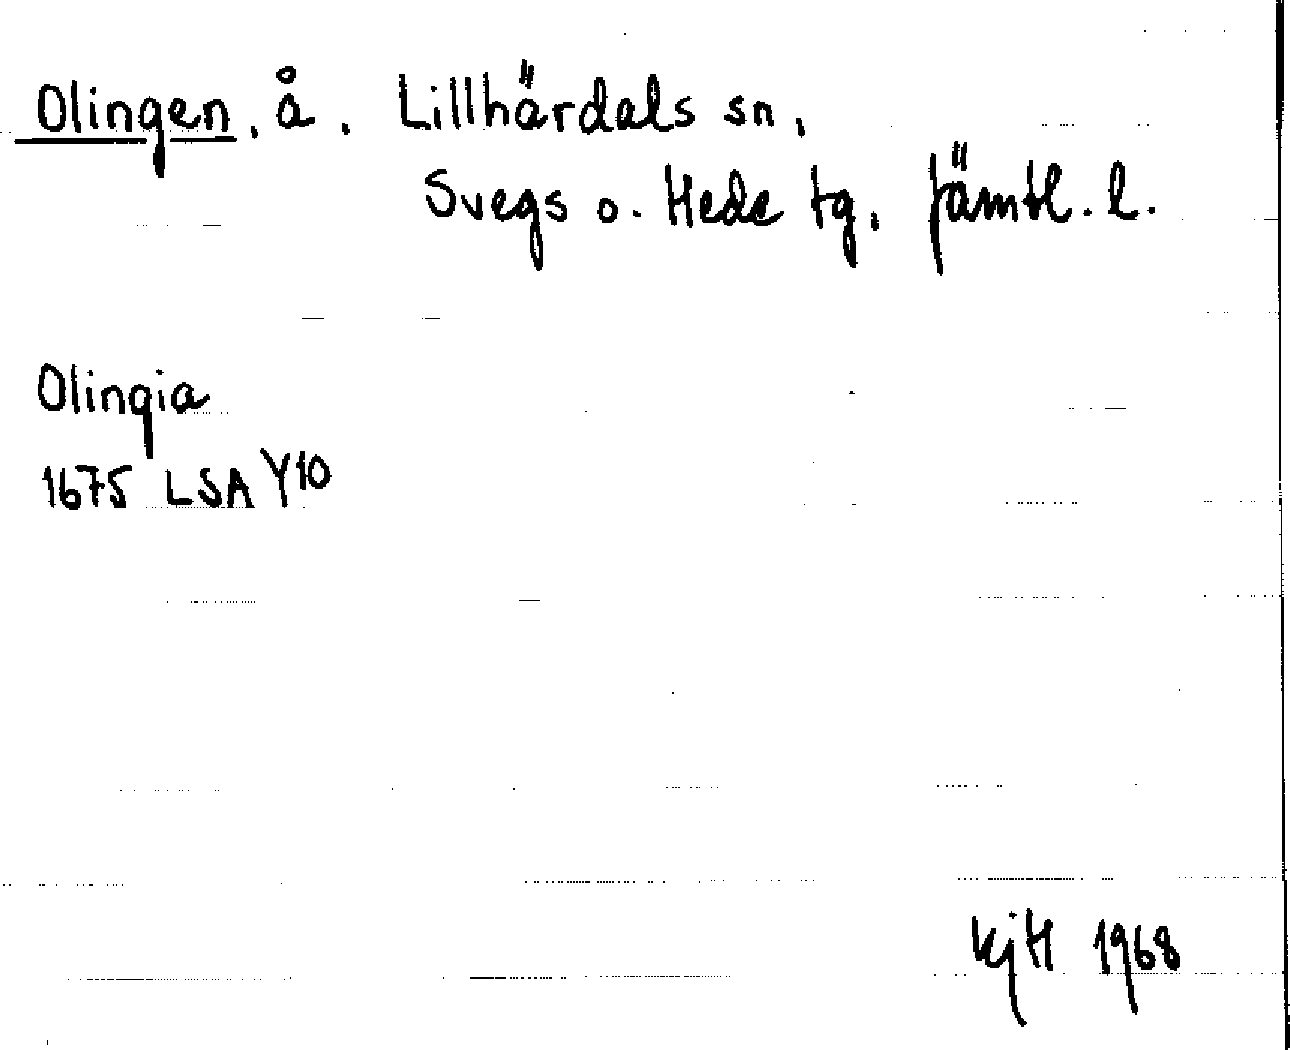 Olingen, å. Lillhärdals sn,
Svegs o. Hede tg, Jämtl. l.
Olingia
1675 LSA Y10
KjH 1968